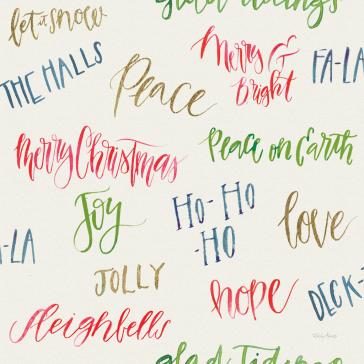 glad tidings
let it snow
THE HALLS
Merry &
Bright
FA-LA
Peace
Merry Christmas
Peace on Earth
Joy
HO-HO
-HO
love
A-LA
JOLLY
hope
DECK-
Sleighbells
glad Tidings